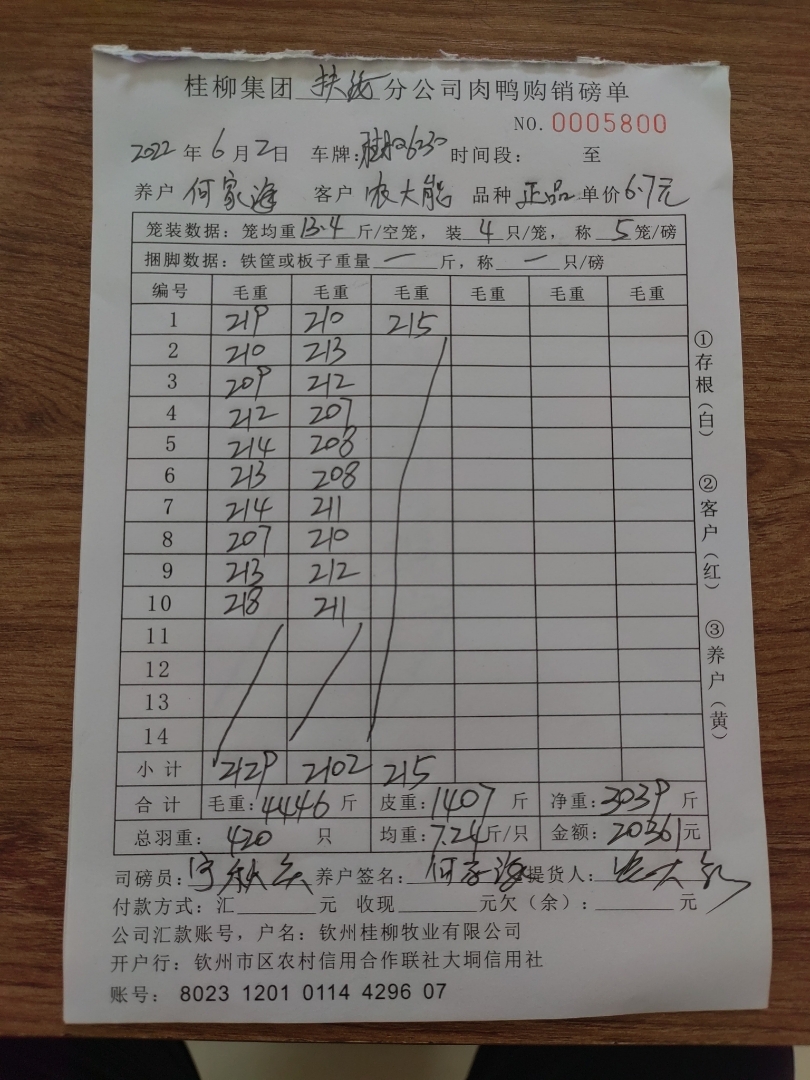 桂柳集团 扶绥 分公司肉鸭购销磅单
NO. 0005800
2022 年 6 月 2 日 车牌: 6230 时间段: 至
养户 何家海 客户 农大能 品种 正品 单价 6.7元
笼装数据: 笼均重 13.4 斤/空笼, 装 4 只/笼, 称 5 笼/磅
捆脚数据: 铁筐或板子重量 一 斤, 称 一 只/磅
编号 毛重 毛重 毛重 毛重 毛重 毛重
1 219 210 215
2 210 213
3 209 212
4 212 207
5 214 208
6 213 208
7 214 211
8 207 210
9 213 212
10 218 211
11
12
13
14
小计 2129 2102 215
合计 毛重: 4446 斤 皮重: 1407 斤 净重: 3039 斤
总羽重: 420 只 均重: 7.24 斤/只 金额: 20361 元
司磅员: 养户签名: 何家海 提货人: 农大能
付款方式: 汇 元 收现 元欠(余): 元
公司汇款账号, 户名: 钦州桂柳牧业有限公司
开户行: 钦州市区农村信用合作联社大垌信用社
账号: 8023 1201 0114 4296 07
①存根(白)
②客户(红)
③养户(黄)